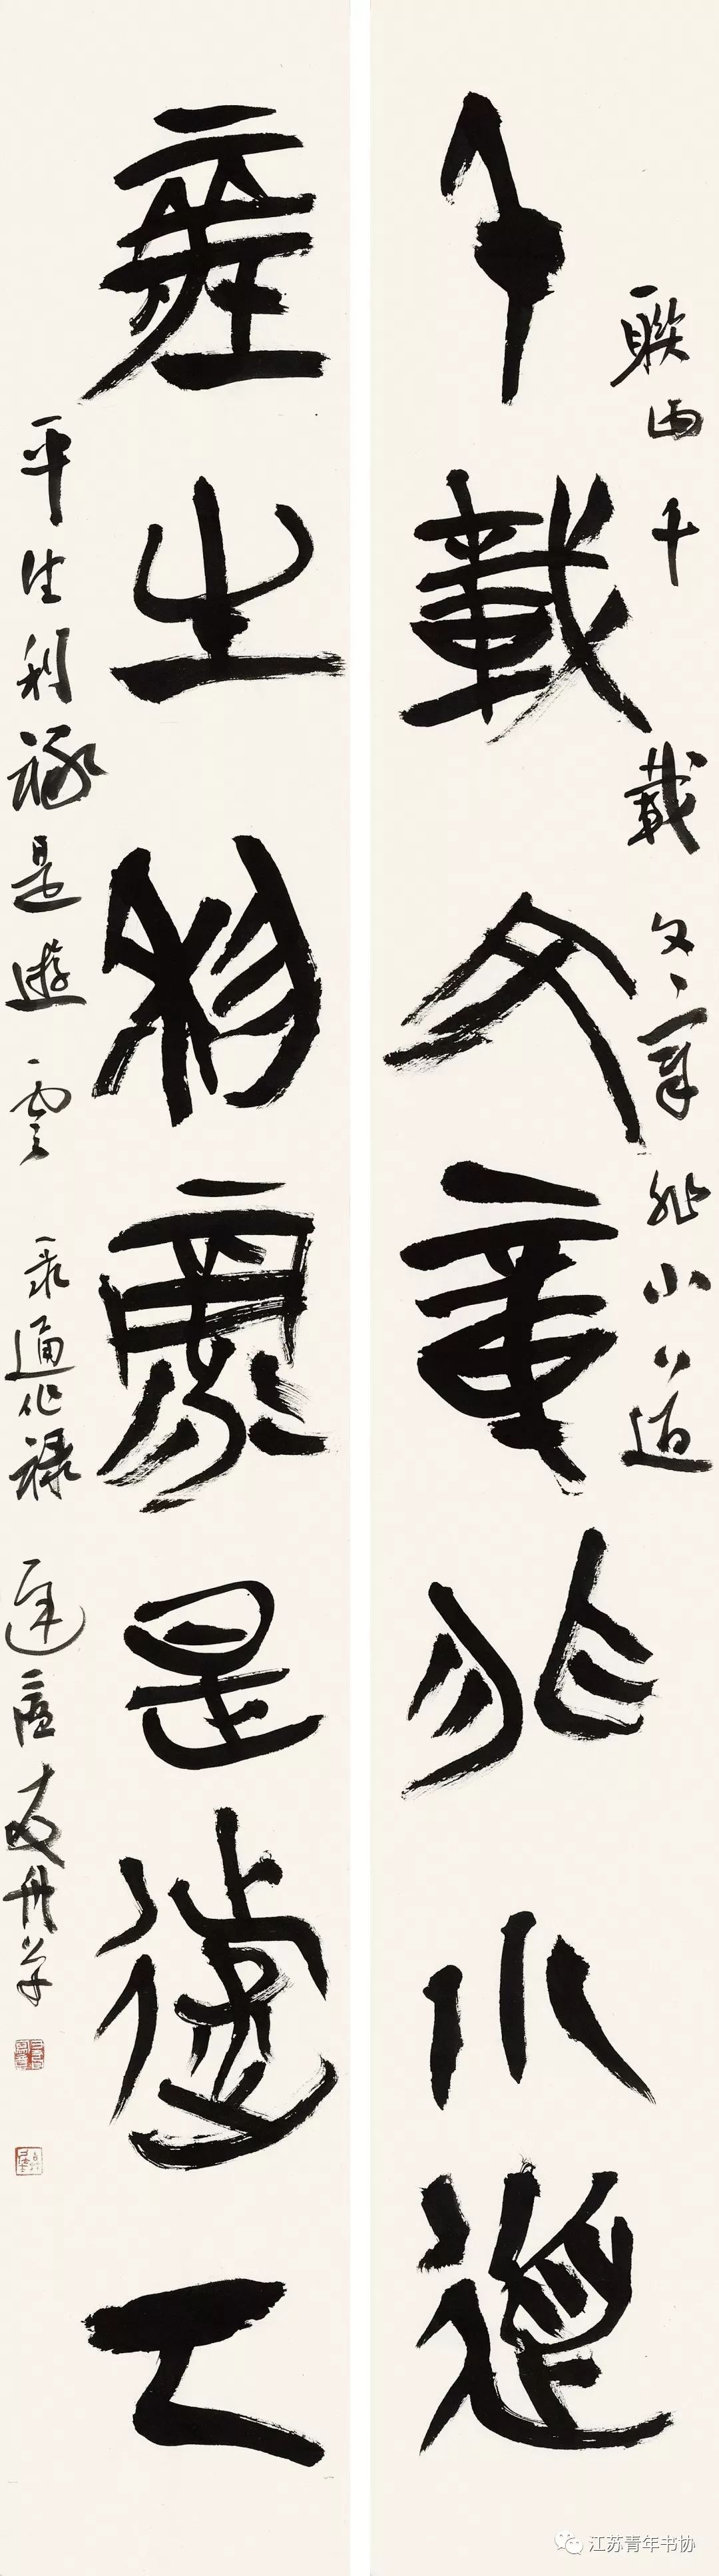 千載文章非小道
千載文章非小道
平生利彔是遊云
平生利祿是遊雲 彔通作祿
江苏青年书协